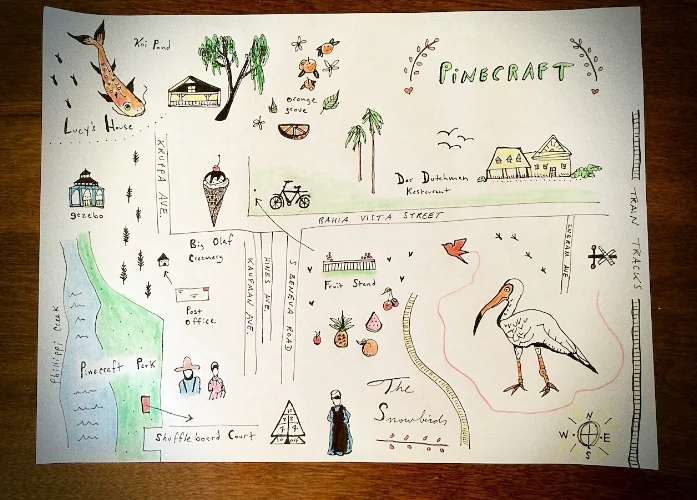 Koi Pond
PiNECRAFT
Lucy's House
orange
grove
KRUPPA AVE.
Der Dutchman
Restaurant
gazebo
BAHIA VISTA STREET
TRAIN TRACKS
Big Olaf
Creamery
KAUFMAN AVE.
HINES AVE.
S BENEVA ROAD
INGRAM AVE
Fruit Stand
Post
Office
Phillippi Creek
Pinecraft Park
The
Snowbirds
Shuffleboard Court
N
W
E
S